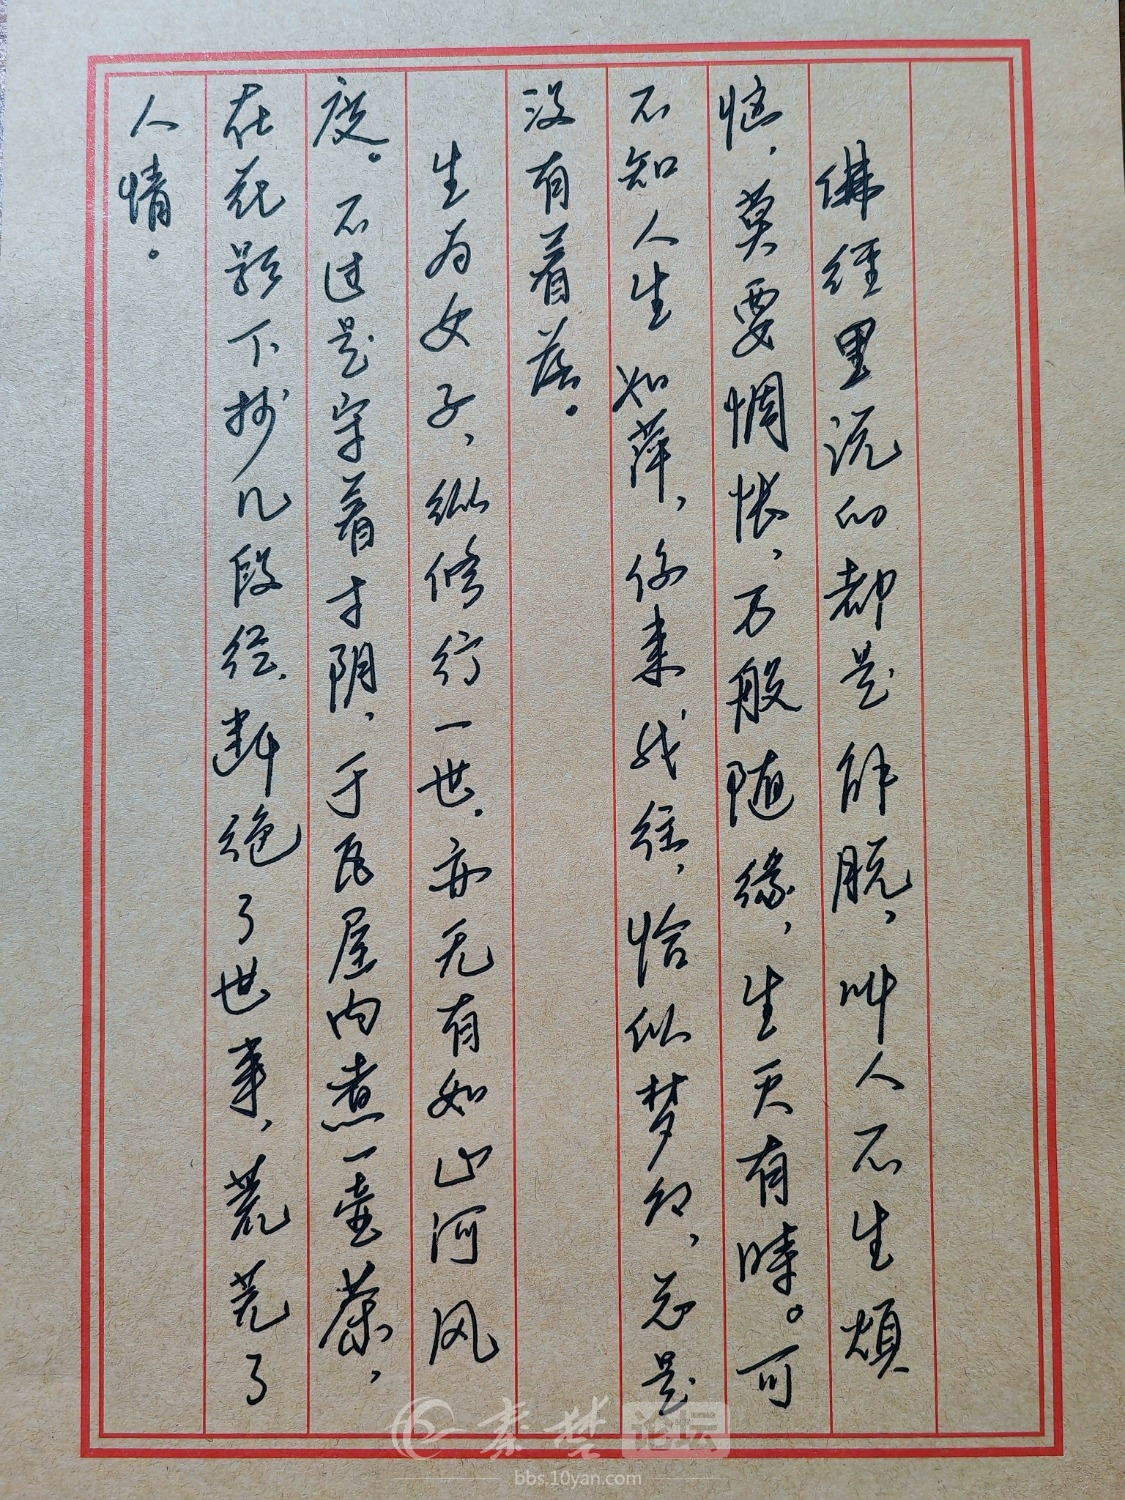 佛经里说的都是解脱，叫人不生烦
恼，莫要惆怅，万般随缘，生灭有时。可
不知人生如萍，你来我往，恰似梦幻，总是
没有着落。
生为女子，纵修行一世，亦无有如山河风
度。不过是守着寸阴，于瓦屋内煮一壶茶，
在花影下抄几段经，断绝了世事，荒芜了
人情。
秦楚论坛
bbs.10yan.com